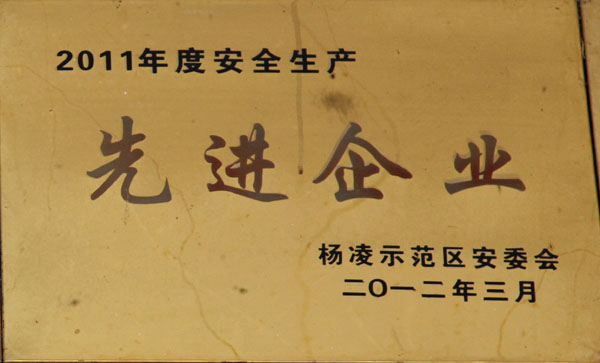 2011年度安全生产
先进企业
杨凌示范区安委会
二〇一二年三月